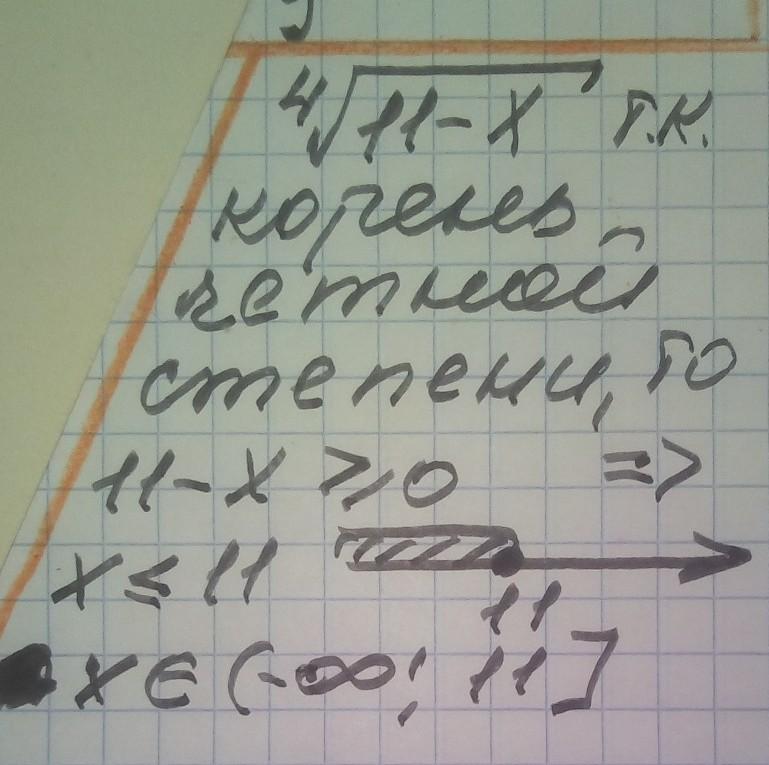 ⁴√11-x т.к.
корень
четной
степени, то
11-x ⩾ 0 =>
x ≤ 11
11
x ∈ (-∞; 11]